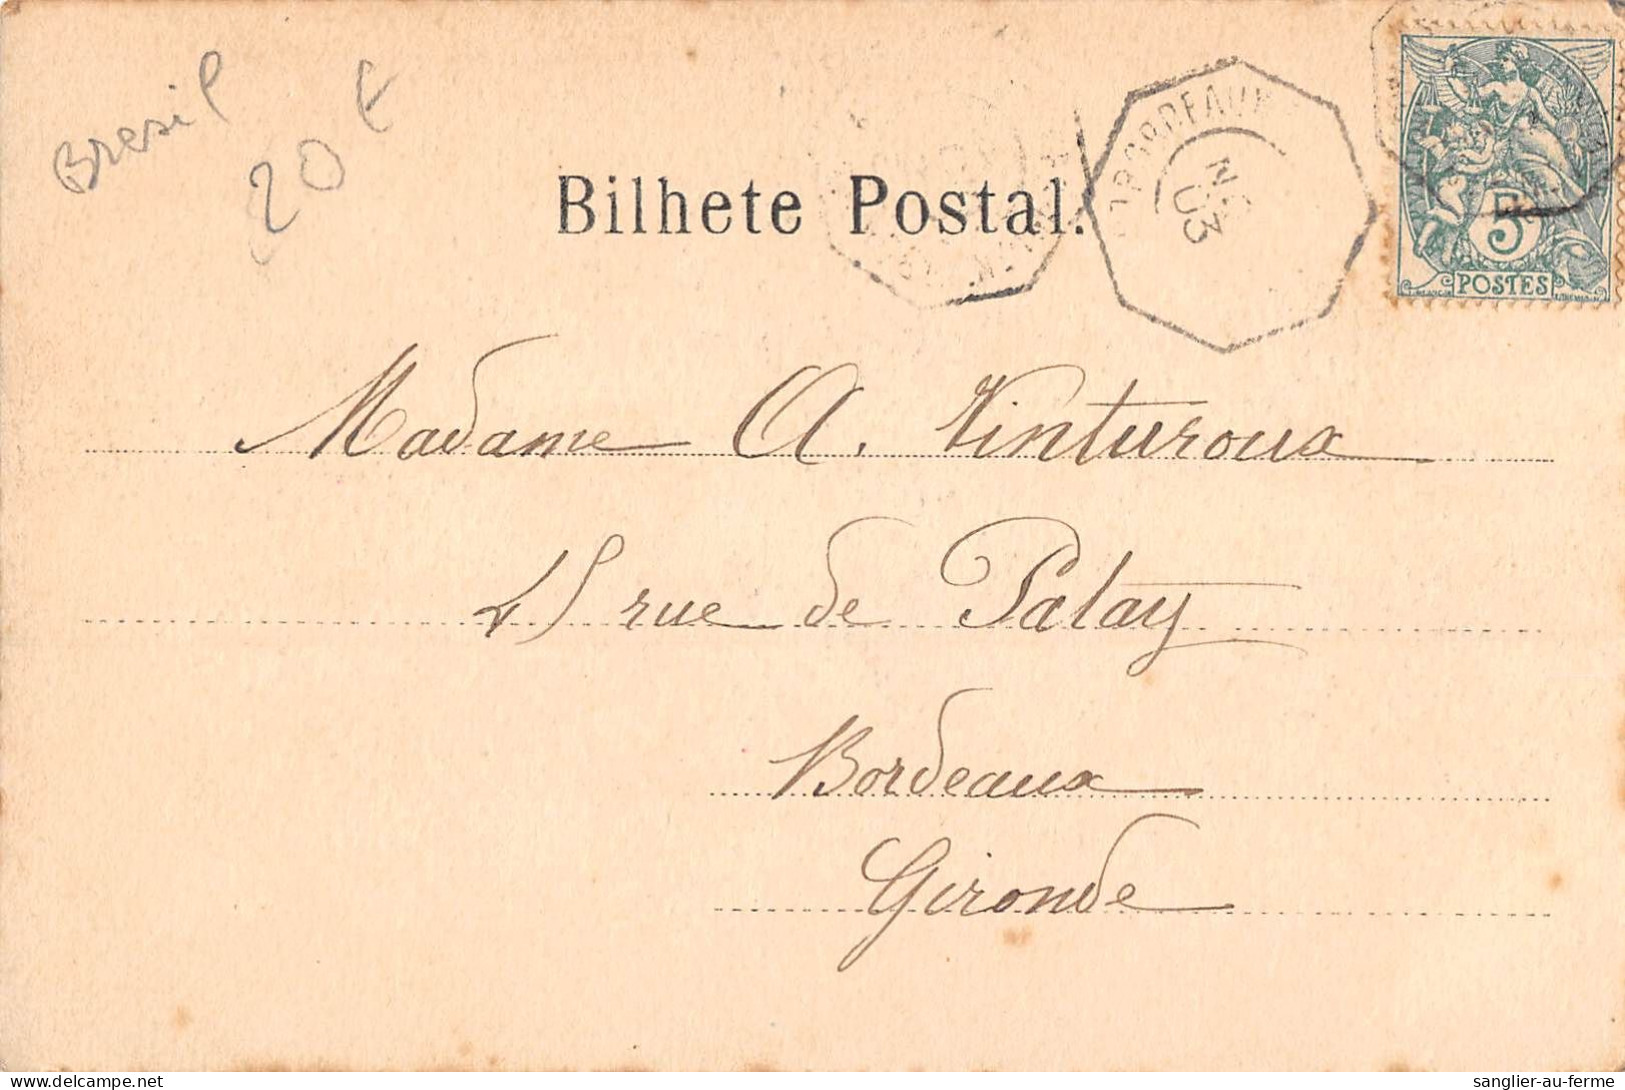 Bresil
20 €
Bilhete Postal.
BORDEAUX
03
5
POSTES
Madame A. Vinturoux
45 rue de Patay
Bordeaux
Gironde
sanglier-au-ferme